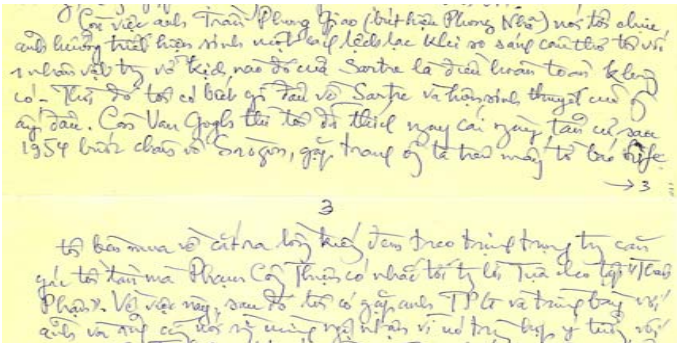 Còn việc anh Trần Phong Giao (bút hiệu Phong Nhã) nói tôi chịu
ảnh hưởng triết hiện sinh một cách lệch lạc khi so sánh câu thơ tôi với
1 nhân vật tg vở kịch nào đó của Sartre là điều hoàn toàn không
có. Thời đó tôi có biết gì đâu về Sartre và hiện sinh thuyết của ô
ấy đâu. Còn Van Gogh thì tôi đã thích ngay cái ngày tản cư sau
1954 bước chân vô Sàigòn, gặp tranh ô ta trên mấy tờ báo Life
→ 3
3
tôi bèn mua về cắt ra lồng kiếng đem treo trong căn
gác tôi mà Phạm Công Thiện có nhắc tới tg lời Tựa cho tập "Thánh
Phận". Về việc này, sau đó tôi có gặp anh TPG và trình bày với
anh và ảnh cũng nói